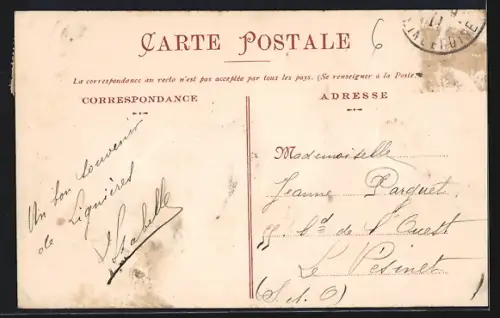 CARTE POSTALE
6
La correspondance au recto n'est pas acceptée par tous les pays. (Se renseigner à la Poste
CORRESPONDANCE
ADRESSE
Un bon souvenir
de Lignières
Isabelle
Mademoiselle
Jeanne Parquet
Bd de l'Ouest
Le Pésinet
(S. & O)